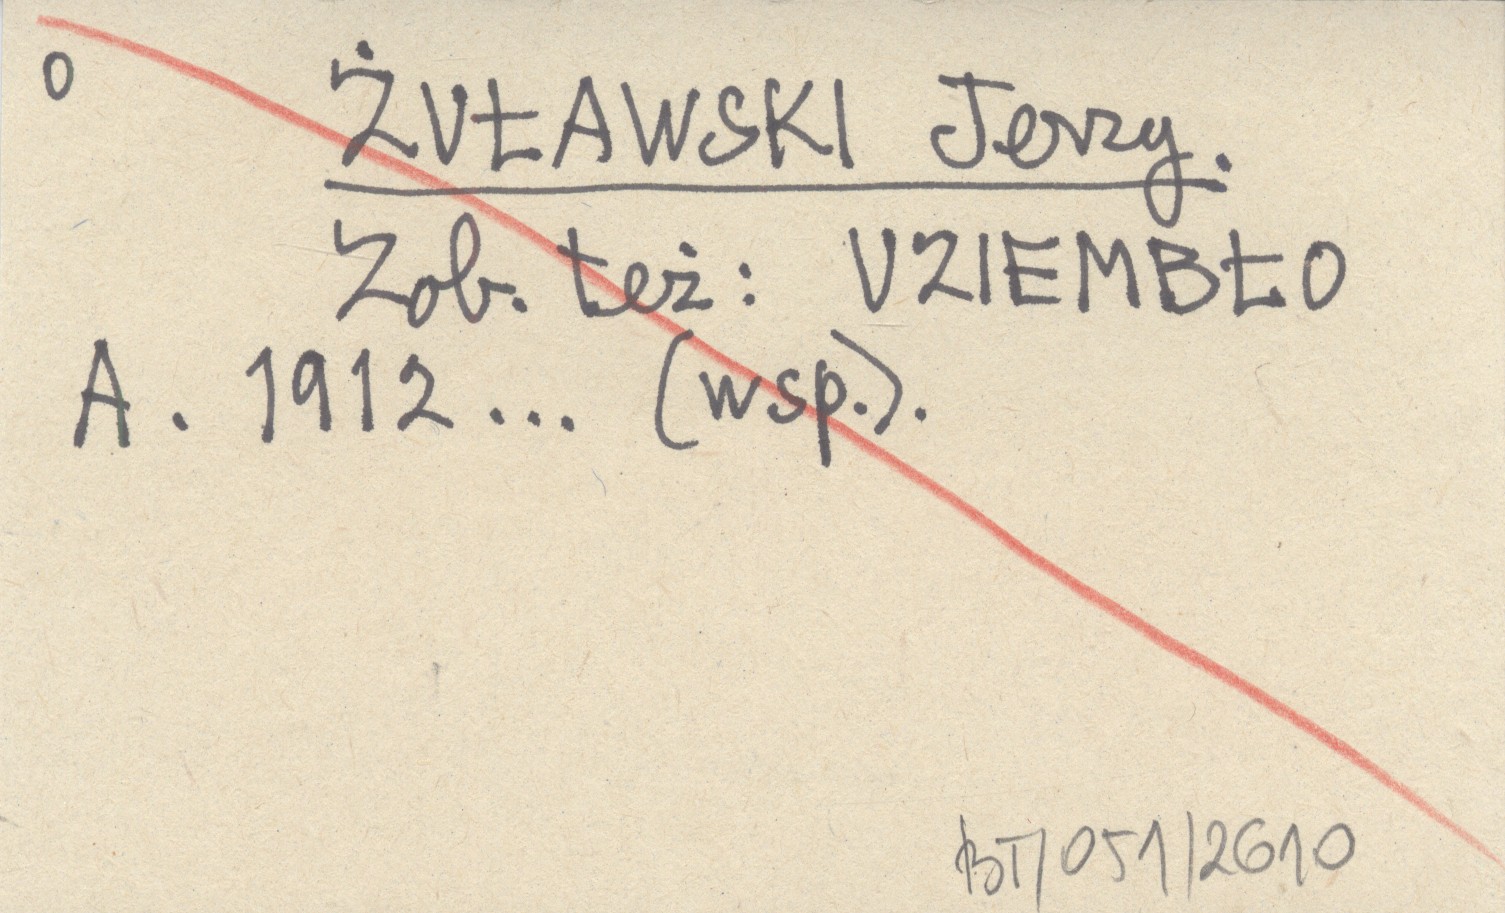 0
ŻUŁAWSKI Jerzy.
Zob. też: UZIEMBŁO
A. 1912... (wsp.).
BT/051/2610